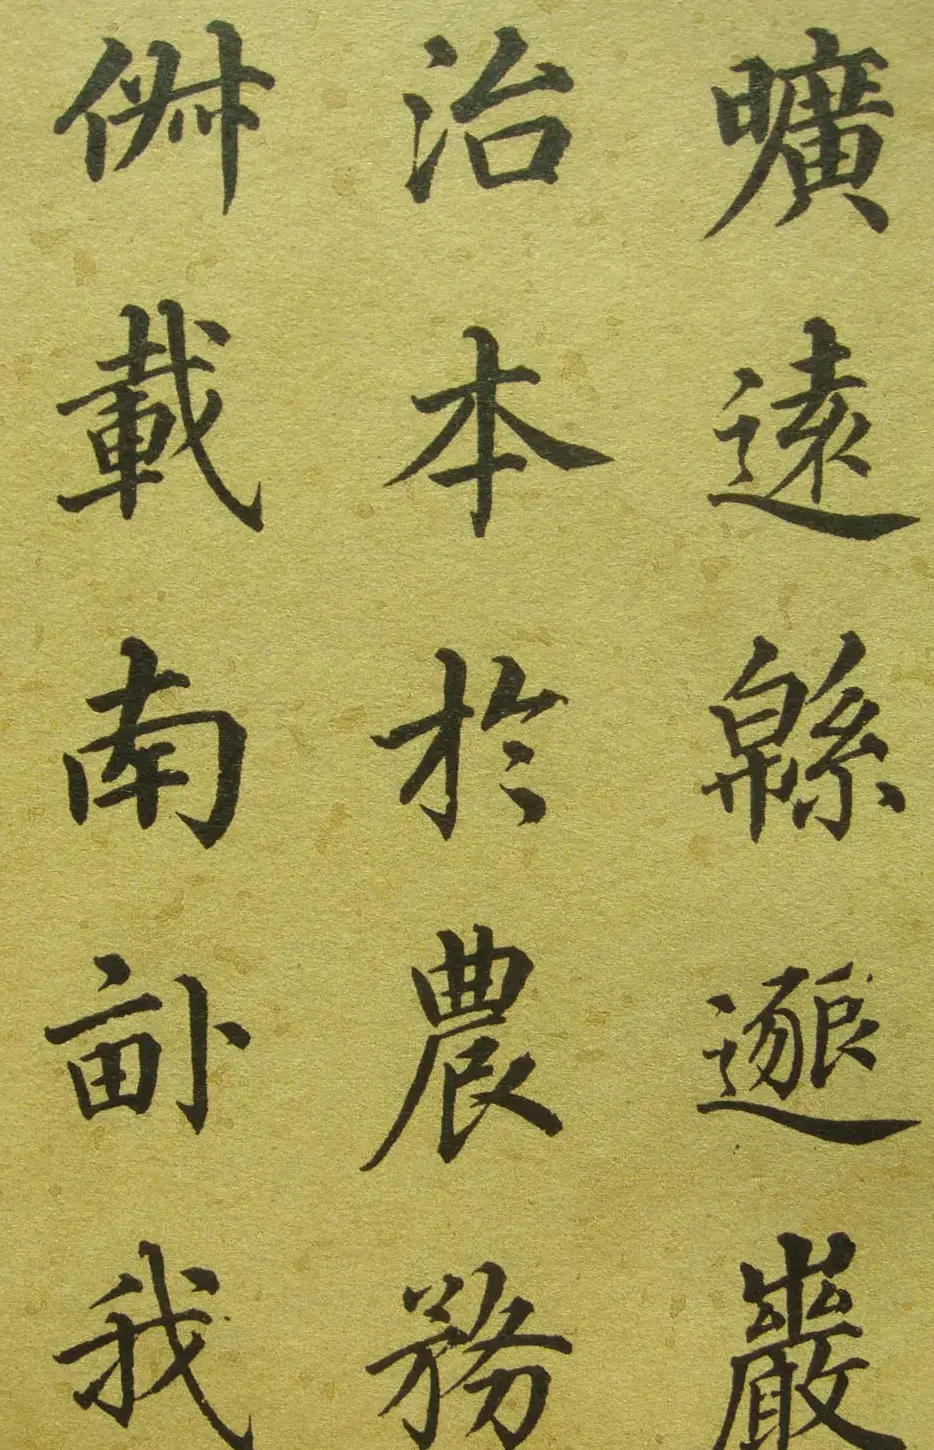 曠遠緜邈巖
治本於農務
俶載南畝我